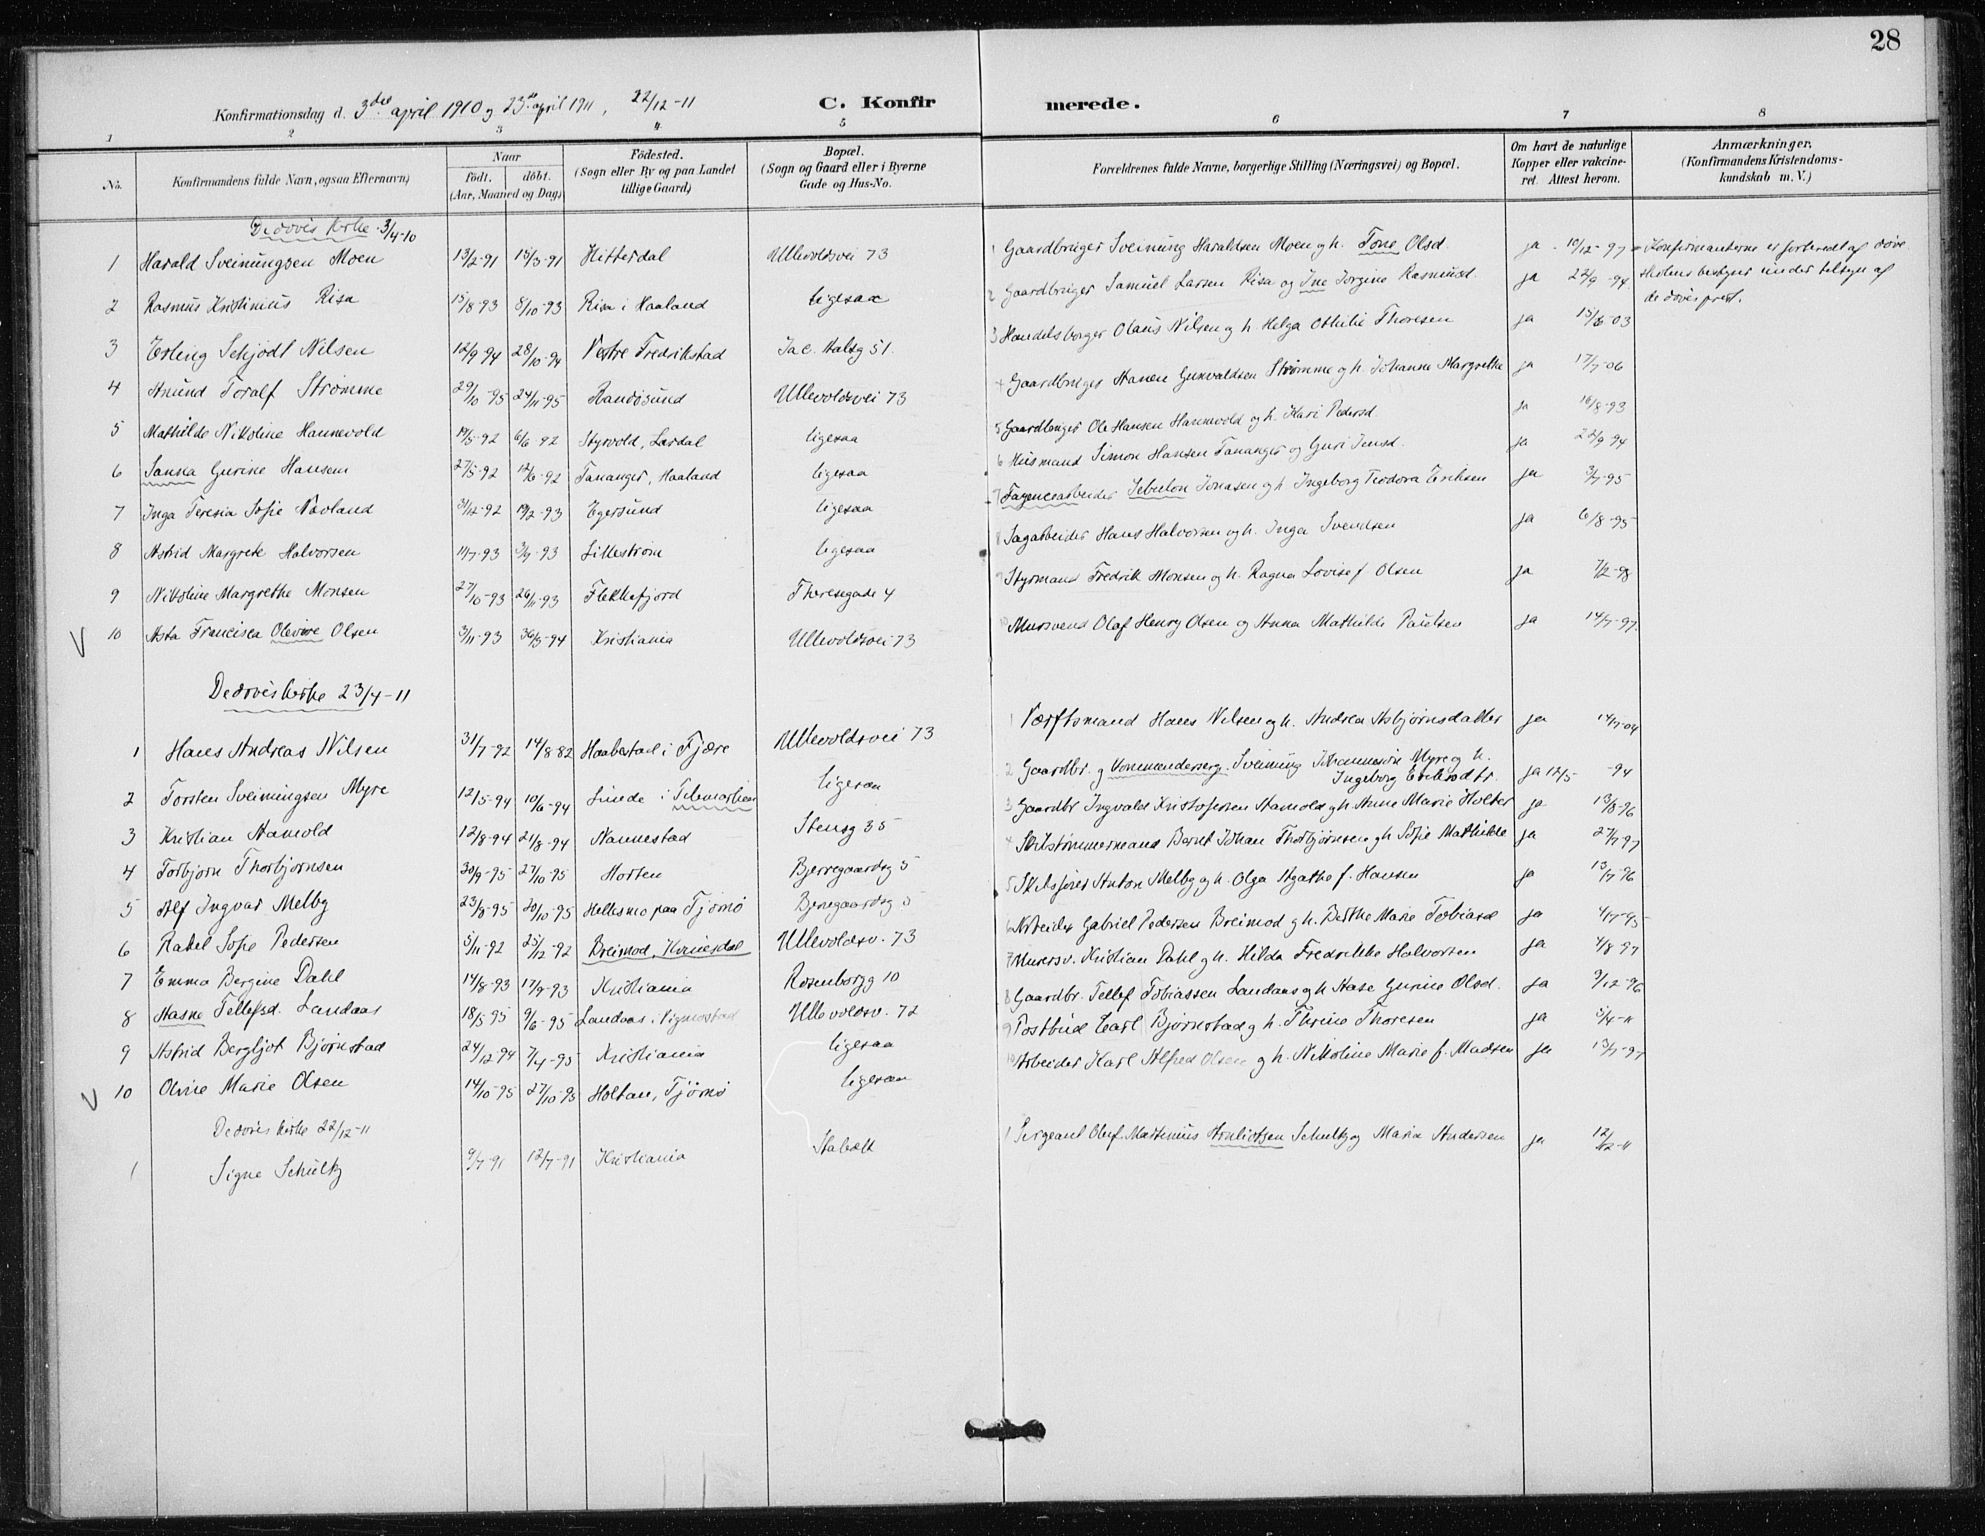 28
Konfirmationsdag d. 3die april 1910 og 23de april 1911, 22/12-11 C. Konfirmerede.
1 2 3 4 5 6 7 8
No. Konfirmandens fulde Navn, ogsaa Efternavn) Naar født. døbt. (Aar, Maaned og Dag) Fødested. (Sogn eller By og paa Landet tillige Gaard) Bopæl. (Sogn og Gaard eller i Byerne Gade og Hus-No. Forældrenes fulde Navne, borgerlige Stilling (Næringsvei) og Bopæl. Om havt de naturlige Kopper eller vakcineret. Attest herom. Anmærkninger. (Konfirmandens Kristendomskundskab m. V.)
Dedøves kirke 3/4-10
1 Harald Sveinungsen Moen 13/2-91 15/3-91 Hitterdal Ullevoldsvei 73 1 Gaardbruger Sveinung Haraldsen Moen og h. Tone Olsd. ja 10/12-97 Konfirmanterne er forberedt af døve
2 Rasmus Kristinius Risa 15/8-93 8/10-93 Risa i Haaland ligesaa 2 Gaardbruger Samuel Larsen Risa og Ine Jorgine Rasmusd. ja 22/9-94 skolens bestyrer under tilsyn af
de døves prest.
3 Erling Schjödt Nilsen 12/9 94 28/10-94 Vestre Fredrikstad Jac. Aalsg 51. 3 Handelsborger Olaus Nilsen og h Helga Othilie Thoresen ja 15/6-03
4 Anund Toralf Strømme 29/10-95 24/11-95 Randøsund Ullevoldsvei 73 4 Gaardbruger Gunvaldsen Strømme og h. Johanne Margrethe ja 17/7-06
5 Mathilde Nikoline Hannevold 14/5-92 6/6 92 Styrvold, Lardal ligesaa 5 Gaardbruger Ole Hansen Hannevold og h. Kari Pedersd. ja 16/8-93
6 Sanna Gurine Hansen 27/5-92 12/6-92 Tananger, Haaland ligesaa 6 Husmand Simon Hansen Tananger og Guri Jensd. ja 22/9 94
7 Inga Teresia Sofie Navland 31/12-92 19/2-93 Egersund ligesaa 7 Fayencearbeider Sebulon Jonasen og h Ingeborg Teodora Eriksen ja 3/7-95
8 Astrid Margrete Halvorsen 11/7-93 3/9-93 Lillestrøm ligesaa 8 Sagarbeider Hans Halvorsen og h. Inga Svendsen ja 6/8-95
9 Nikoline Margrethe Monsen 27/10-93 26/11-93 Flekkefjord Theresegade 4 9 Styrmand Fredrik Monsen og h. Ragna Lovise f. Olsen ja 7/2-98
V 10 Asta Francisca Olevine Olsen 3/11-93 30/3-94 Kristiania Ullevoldsvei 73 10 Mursvend Olaf Henry Olsen og Anna Mathilde Paulsen ja 14/7-97.
Dedøves kirke 23/4-11
1 Hans Andreas Nilsen 31/7-92 14/8-82 Haabestad i Fjære Ullevoldsvei 73 1 Værftsmand Hans Nilsen og h. Andrea Asbjørnsdatter ja 14/7-04
2 Torsten Sveinungsen Myre 12/5-94 10/6-94 i Telemarken ligesaa 2 Gaardbr. og Sveinung Johannesen Myre og h.
Ingeborg ja 12/5 -94
3 Kristian Aamold 12/8-94 21/8-94 Nannestad Stensg 35 3 Gaardbr Ingvald Kristofersen Aamold og h Anne Marie Holter ja 13/8-96
4 Torbjørn Thorbjørnsen 30/9-95 27/10-95 Horten Bjerregaardsg 5 4 Skibstømmermand Bernt Johan Thorbjørnsen og h Sofie Mathilde ja 27/7 97
5 Alf Ingvar Melby 23/8-95 20/10-95 Hellesmo paa Tjømø Bjerregaardsg 5 5 Skibsfører Anton Melby og h. Olga Agathe f. Hansen ja 13/7-96
6 Rakel Sofie Pedersen 5/11-92 25/12-92 Breimod, Kvinesdal Ullevoldsv. 73 6 Arbeider Gabriel Pedersen Breimod og h. Berthe Marie Tobiasd ja 4/7-95
7 Emma Bergine Dahl 14/8-93 17/9-93 Kristiania Rosenborgg 10 7 Murersv. Kristian Dahl og h. Hilda Fredrikke Halvorsen ja 4/8 97
8 Aasne Tellefsd. Landaas 18/5 95 9/6-95 Landaas i Vigmostad Ullevoldsv. 72 8 Gaardbr. Tellef Tobiassen Landaas og h Aase Gurine Olsd. ja 9/12-96
9 Astrid Bergljot Bjørnstad 24/12 94 7/4-95 Kristiania ligesaa 9 Postbud Carl Bjørnstad og h. Thrine Thoresen ja 5/4-11
V 10 Olvine Marie Olsen 14/10-95 27/10-95 Holtan, Tjømø ligesaa 10 Arbeider Karl Alfred Olsen og h. Nikoline Marie f. Madsen ja 13/7-97
Dedøves kirke 22/12-11
1 Signe Schultz 9/7-91 12/7-91 Kristiania Stabæk 1 Sergeant Oluf Martinius Arnliotsen Schultz og Maria Andersen ja 12/12-11